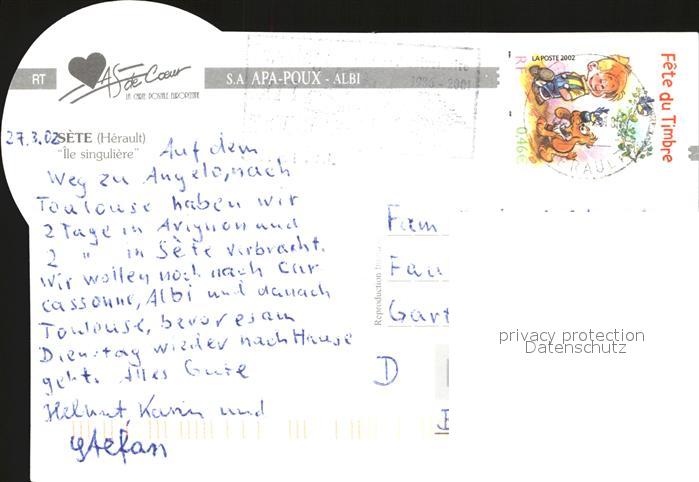 RT
AS de Cœur
LA CARTE POSTALE EUROPEENNE
S.A. APA-POUX - ALBI
LA POSTE 2002
0,46€
Fête du Timbre
27.3.02
SÈTE (Hérault)
"Ile singulière"
Auf dem
Weg zu Angelo, nach
Toulouse haben wir
2 Tage in Avignon und
2 " in Sète verbracht.
Wir wollen noch nach Car
cassonne, Albi und danach
Toulouse, bevor es am
Dienstag wieder nach Hause
geht. Alles Gute
Helmut, Karin und
Stefan
Reproduction
Fam
Fau
Gart
D
privacy protection
Datenschutz